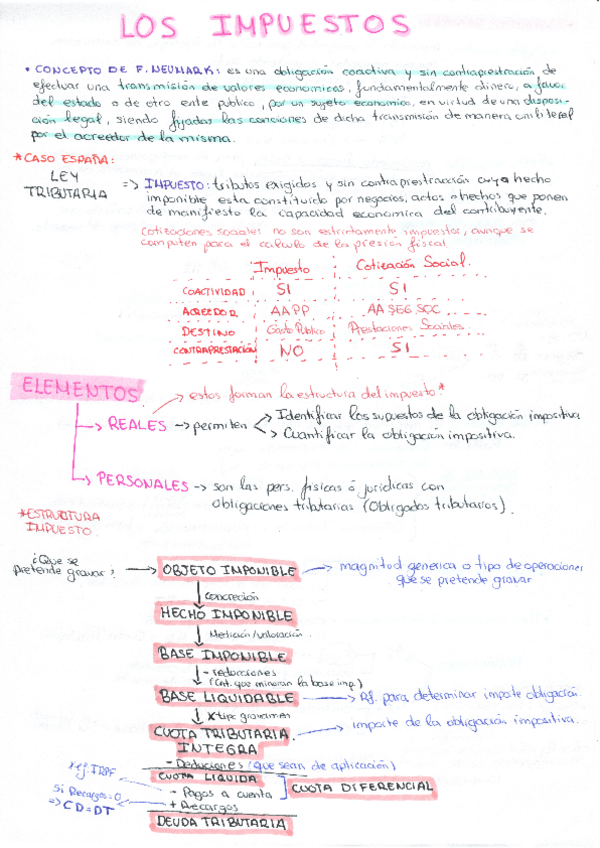 LOS IMPUESTOS
• CONCEPTO DE F. NEUMARK: es una obligación coactiva y sin contraprestración de
efectuar una transmisión de valores economicos, fundamentalmente dinero, a favor
del estado o de otro ente publico, por un sujeto economico, en virtud de una disposi-
ción legal, siendo fijadas las conciones de dicha transmisión de manera unilateral
por el acreedor de la misma.
*CASO ESPAÑA:
LEY
TRIBUTARIA
=> IMPUESTO: tributos exigidos y sin contraprestracción cuyo hecho
imponible esta constituido por negocios, actos o hechos que ponen
de manifiesto la capacidad economica del contribuyente.
Cotizaciones sociales no son estrictamente impuestos, aunque se
computen para el calculo de la presión fiscal.
Impuesto Cotización Social.
COACTIVIDAD SI SI
ACREEDOR AAPP AA SEG SOC
DESTINO Gasto Público Prestaciones Sociales
CONTRAPRESTACIÓN NO SI
ELEMENTOS
→ estos forman la estructura del impuesto*
→ REALES → permiten → Identificar los supuestos de la obligación impositiva
> Cuantificar la obligación impositiva.
→ PERSONALES → son las pers. fisicas ó juridicas con
obligaciones tributarias (Obligados tributarios).
*ESTRUCTURA
IMPUESTO
¿Que se
pretende gravar? → OBJETO IMPONIBLE → magnitud generica o tipo de operaciones
que se pretende gravar
↓ concreción
HECHO IMPONIBLE
↓ Medición/valoración
BASE IMPONIBLE
↓ - reducciones
(Cnt. que minoran la base imp.)
BASE LIQUIDABLE → Rf. para determinar importe obligación.
↓ x tipo gravamen
CUOTA TRIBUTARIA → importe de la obligación impositiva.
INTEGRA
- Deducciones (que sean de aplicación)
ref. IRPF CUOTA LIQUIDA
CUOTA DIFERENCIAL
- Pagos a cuenta
Si Recargos=0
=> CD=DT
+ Recargos
DEUDA TRIBUTARIA